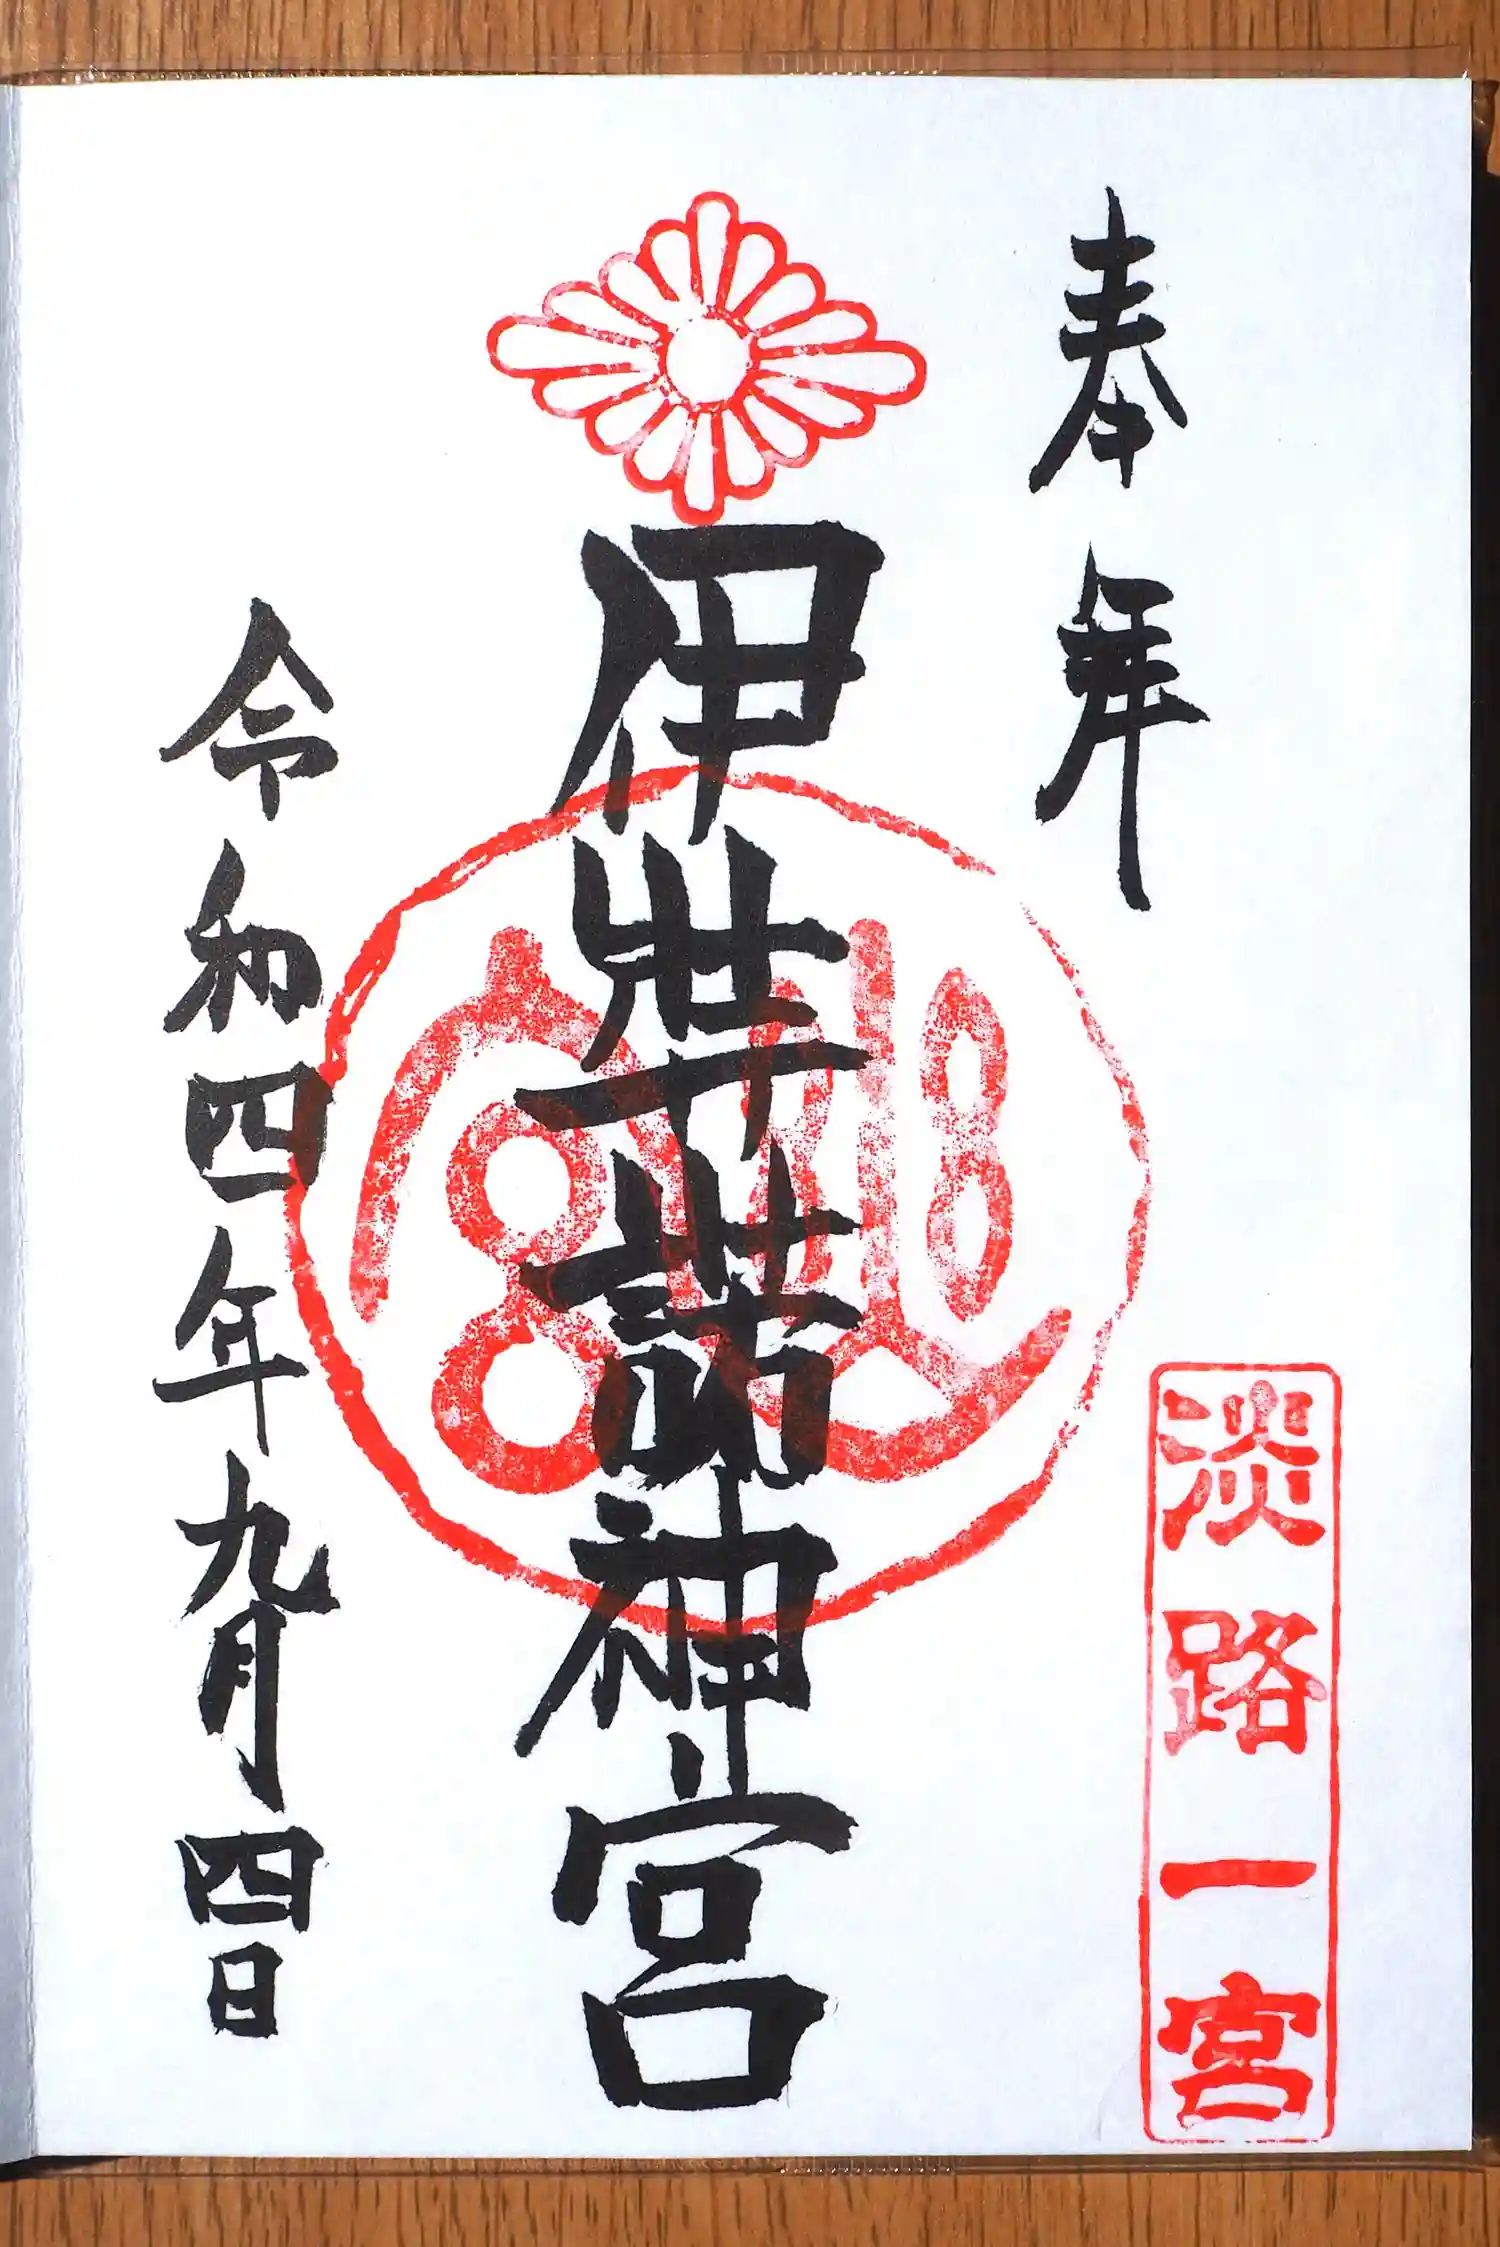 奉拝
淡路一宮
伊弉諾神宮
神宮
令和四年九月四日